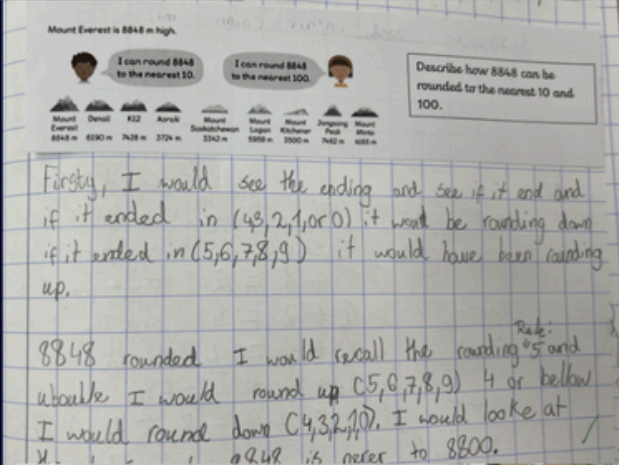 Mount Everest is 8848 m high.
I can round 8848
to the nearest 10.
I can round 8848
to the nearest 100.
Describe how 8848 can be
rounded to the nearest 10 and
100.
Mount Everest 8848 m
Denali 6190 m
K12 7428 m
Aoraki 3724 m
Mount Saskatchewan 3342 m
Mount Logan 5959 m
Mount Kitchener 3500 m
Jongsong Peak 7462 m
Mount Minto
Firsty, I would see the ending and see if it end and
if it ended in (4,3,2,1,or 0) it would be rounding down
if it ended in (5,6,7,8,9) it would have been rounding
up.
Rule:
8848 rounded I would recall the rounding "5 and
ubouble I would round up (5,6,7,8,9) 4 or bellow
I would round down (4,3,2,1,0). I would looke at
8848 is nerer to 8800.